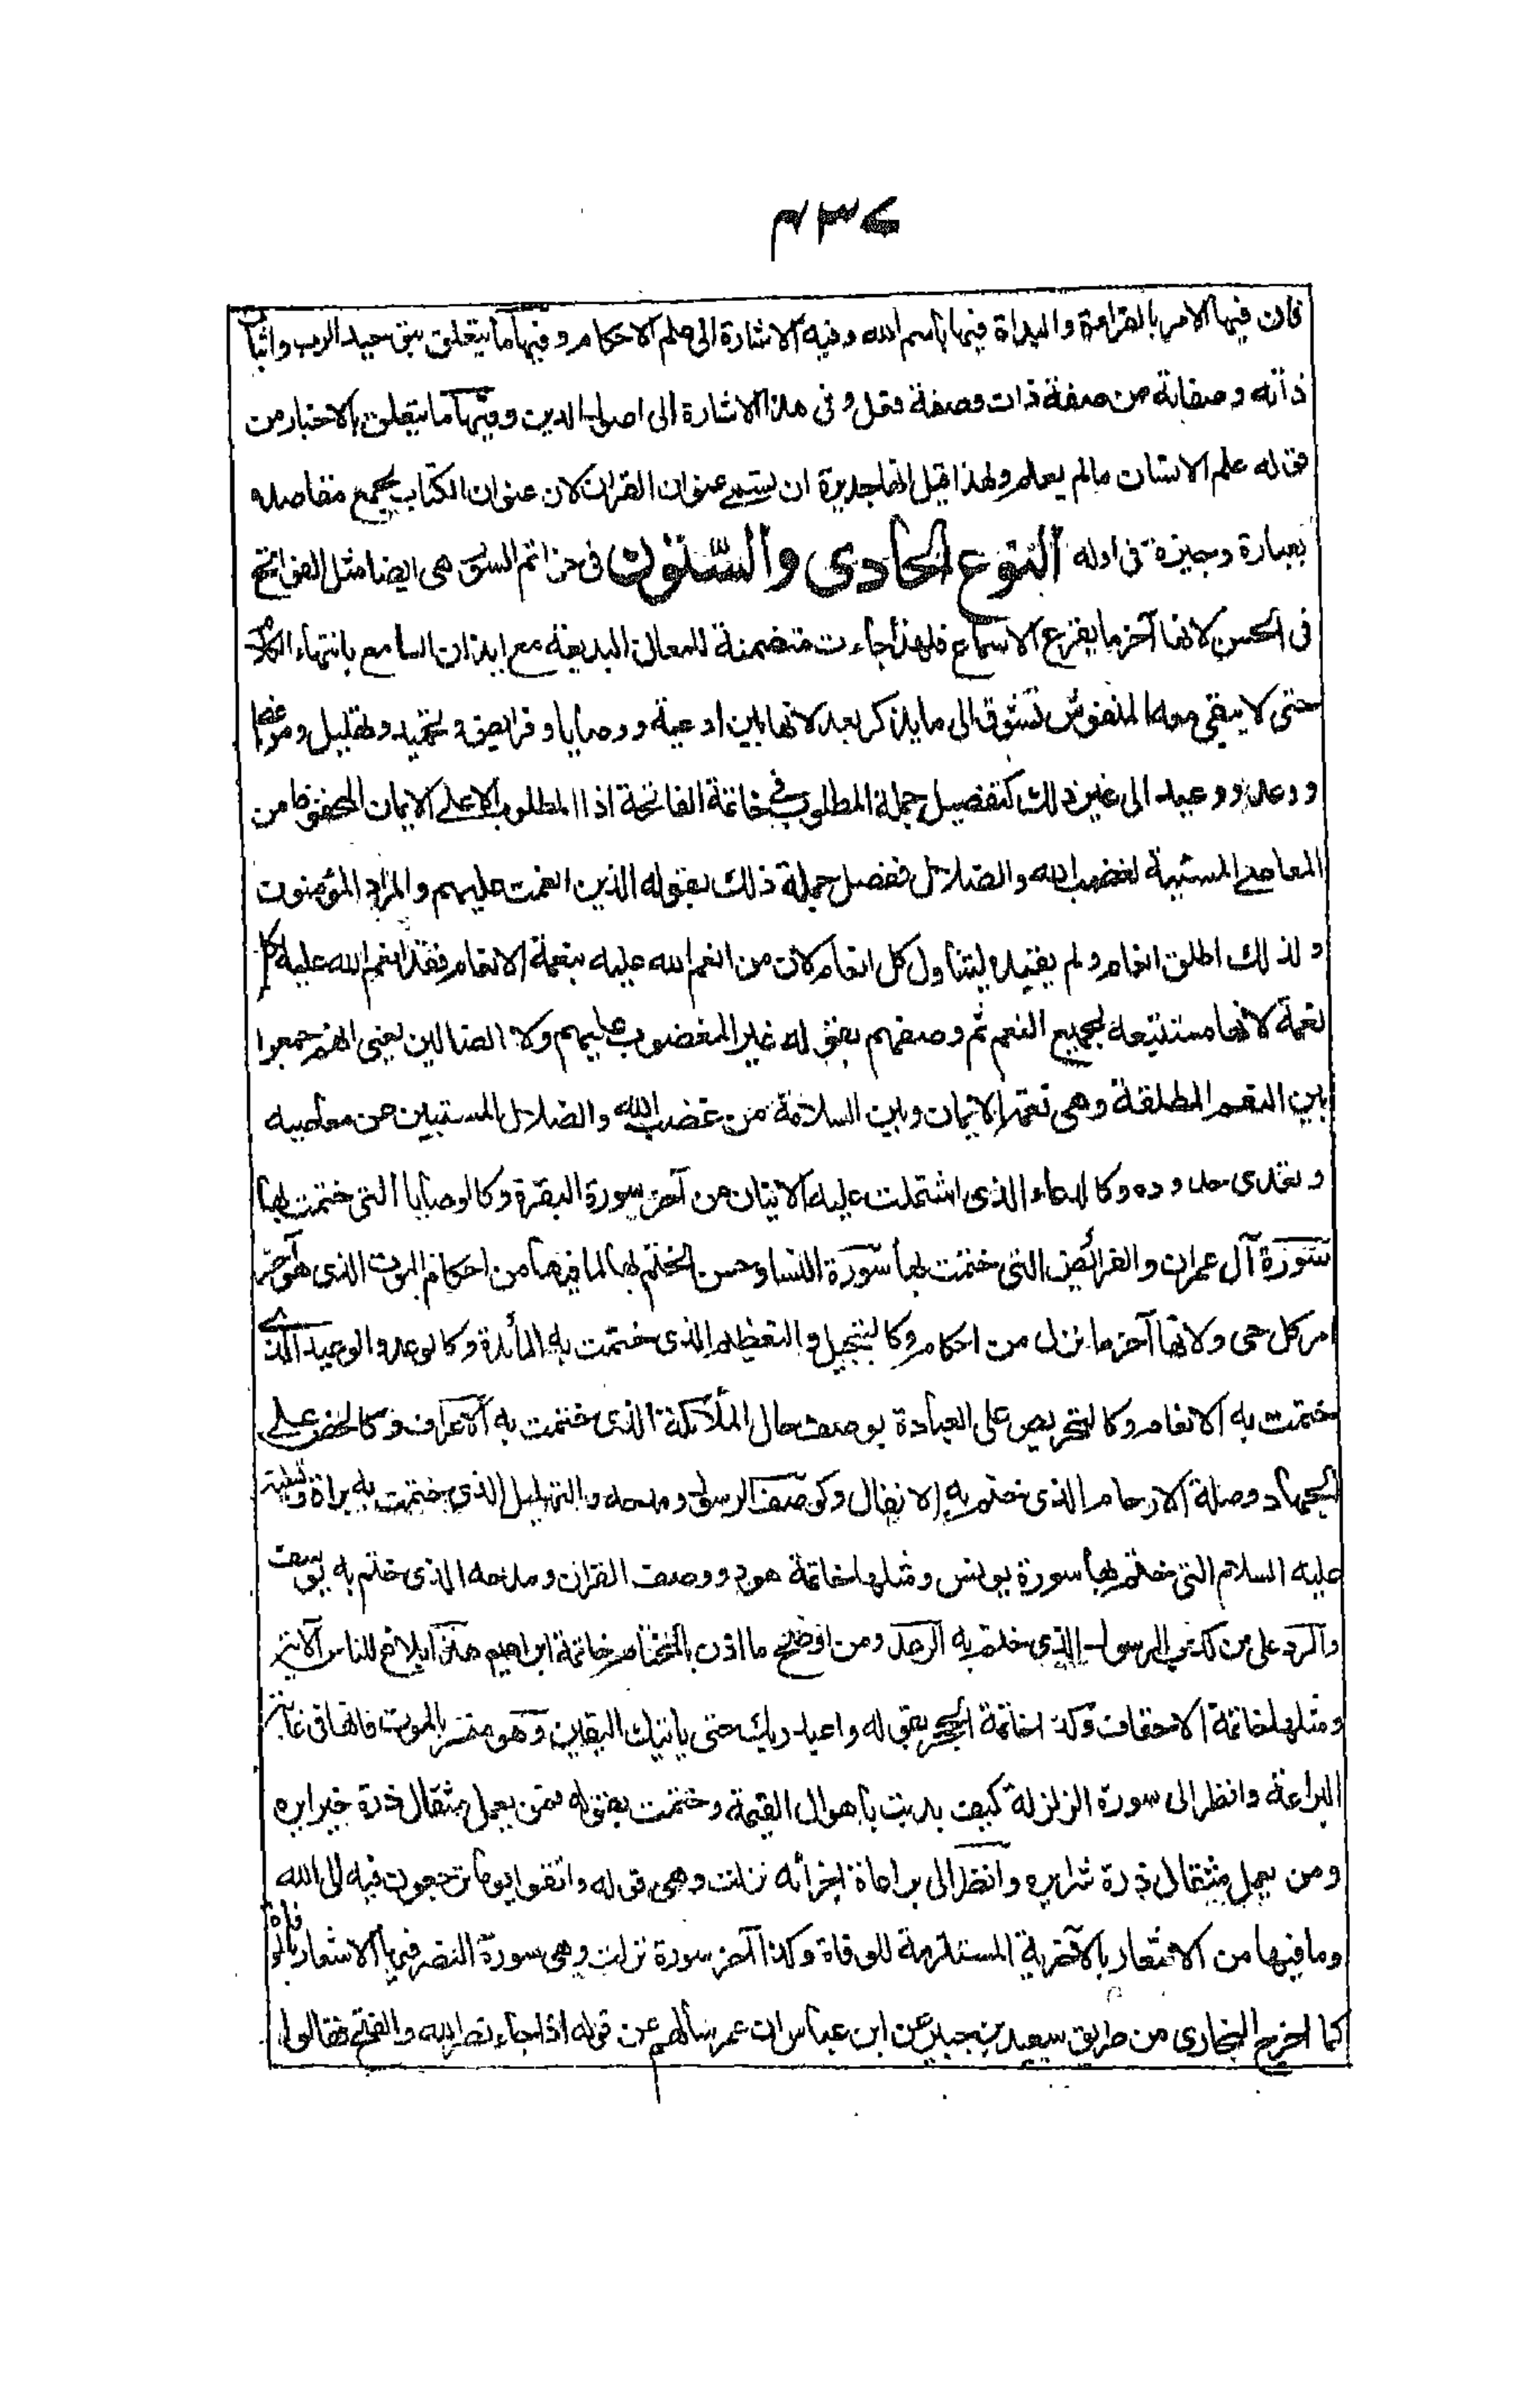 ۶۳۷
فان فيها الامر بالقراءة والبداة فيها باسم الله وفيه الاشارة الى علم الاحكام وفيها ما يتعلق بتوحيد الرب واثبات
ذاته وصفاته من صفة ذات وصفة فعل وفى هذا الاشارة الى اصول الدين وفيها ما يتعلق بالاخبار من
قوله علم الانسان مالم يعلم ولهذا قيل انها جديرة ان يسمى عنوان القران لان عنوان الكتاب يجمع مقاصده
بعبارة وجيزة فى اوله النوع الحادى والستون فى خواتم السور هى ايضا مثل الفواتح
فى الحسن لانها آخر ما يقرع الاسماع فلهذا جاءت متضمنة للمعانى البديعة مع ايذان السامع بانتهاء الكلام
حتى لا يبقى معه للنفوس تشوق الى ما يذكر بعد لانها بين ادعية ووصايا وفرايض وتحميد وتهليل ومواعظ
ووعد ووعيد الى غير ذلك كتفصيل جملة المطلوب فى خاتمة الفاتحة اذ المطلوب الاعلى الايمان المحفوظ من
المعاصى المسببة لغضب الله والضلال ففصل جملة ذلك بقوله الذين انعمت عليهم والمراد المؤمنون
ولذلك اطلق انعام ولم يقيده ليتناول كل انعام لان من انعم الله عليه بنعمة الانعام فقد انعم الله عليه بكل
نعمة لانها مستتبعة لجميع النعم ثم وصفهم بقوله غير المغضوب عليهم ولا الضالين يعنى انهم جمعوا
بين النعم المطلقة وهى نعمة الايمان وبين السلامة من غضب الله والضلال المسببين عن معاصيه
وتعدى حدوده وكالدعاء الذى اشتملت عليه الايتان من آخر سورة البقرة وكالوصايا التى ختمت بها
سورة آل عمران والفرائض التى ختمت بها سورة النسا وحسن الختم بها لما فيها من احكام الموت الذى هو آخر
امر كل حى ولانها آخر ما نزل من احكام وكالتبجيل والتعظيم الذى ختمت به المائدة وكالوعد والوعيد الذى
ختمت به الانعام وكالتحريص على العبادة بوصف حال الملائكة الذى ختمت به الاعراف وكالحض على
الجهاد وصلة الارحام الذى ختم به الانفال وكوصف الرسول ومدحه والتهليل الذى ختمت به براة وتسليته
عليه السلام التى ختم بها سورة يونس ومثلها خاتمة هود ووصف القران ومدحه الذى ختم به يوسف
والرد على من كذب الرسول الذى ختم به الرعد ومن اوضح ما اذن بالختام خاتمة ابراهيم هذا بلاغ للناس الاية
ومثلها خاتمة الاحقاف وكذا خاتمة الحجر بقوله واعبد ربك حتى ياتيك اليقين وهو مفسر بالموت فانها فى غاية
البراعة وانظر الى سورة الزلزلة كيف بديت باهوال القيمة وختمت بقوله فمن يعمل مثقال ذرة خيرا يره
ومن يعمل مثقال ذرة شرا يره وانظر الى براعة اخر اٰية نزلت وهى قوله واتقوا يوما ترجعون فيه الى الله
وما فيها من الاشعار بالآخرية المستلزمة للوفاة وكذا آخر سورة نزلت وهى سورة النصر فيها الاشعار بالوفاة
كما اخرج البخارى من طريق سعيد بن جبير عن ابن عباس ان عمر سألهم عن قوله اذا جاء نصر الله والفتح فقالوا